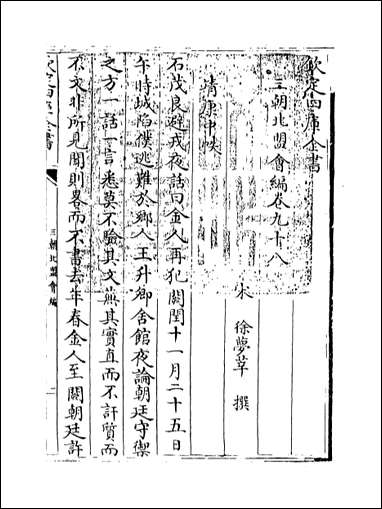 欽定四庫全書
三朝北盟會編卷九十八
宋 徐夢莘 撰
靖康中帙
石茂良避戎夜話曰金人再犯闕閏十一月二十五日
午時城陷僕逃難於鄉人王升卿舍館夜論朝廷守禦
之方一話一言悉莫不驗其文蕪其實直而不訐質而
不文非所見聞則畧而不書去年春金人至闕朝廷許
欽定四庫全書
三朝北盟會編
一